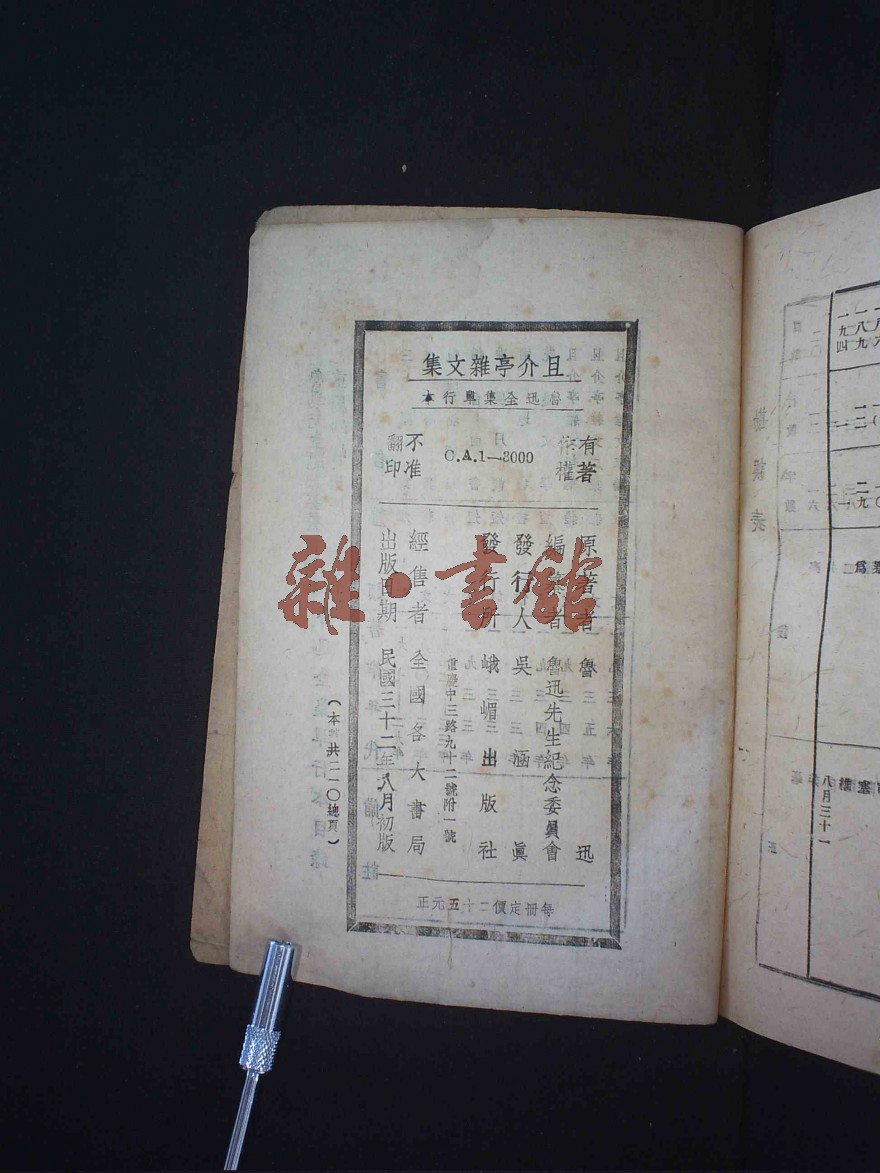 且介亭雜文集
魯迅全集單行本
有著
作權
C.A.1—3000
不准
翻印
原著者 魯迅
編纂者 魯迅先生紀念委員會
發行人 吳涵眞
發行所 峨嵋出版社
重慶中三路九十二號附一號
經售者 全國各大書局
出版日期 民國三十二年八月初版
每冊定價二十五元正
(本書共二一〇總頁)
雜·書館
勘誤表
八月三十一